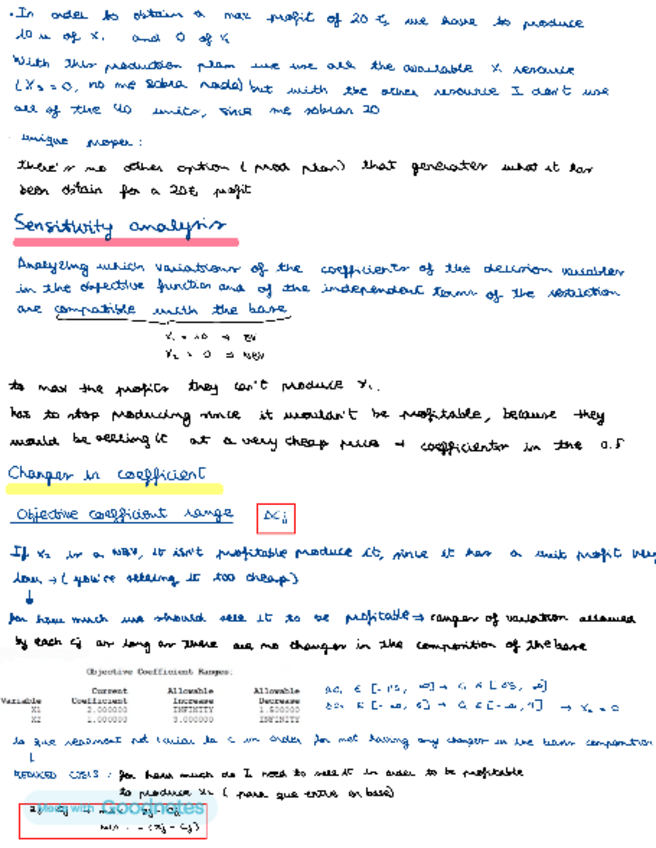 . In order to obtain a max profit of 20 €, we have to produce
10 u of X₁ and 0 of X₂
With this production plan we use all the available X₁ resource
(X₃ = 0, no me sobra nada) but with the other resource I don't use
all of the 40 units, since me sobran 20
unique proper:
there's no other option (prod plan) that generates what it has
been obtain for a 20€ profit
Sensitivity analysis
Analyzing which variations of the coefficients of the decision variables
in the objective function and of the independent terms of the restriction
are compatible with the base
X₁ = 10 → BV
X₂ = 0 → NBV
to max the profits they can't produce X₁.
has to stop producing since it wouldn't be profitable, because they
would be selling it at a very cheap price → coefficients in the O.F
Changes in coefficient
Objective coefficient range Δcj
If X₂ is a NBV, it isn't profitable produce it, since it has a unit profit very
low → (you're selling it too cheap)
for how much we should sell it to be profitable → ranges of variation allowed
by each cj as long as there are no changes in the composition of the base
Objective Coefficient Ranges:
Current Allowable Allowable
Variable Coefficient Increase Decrease
X1 2.000000 INFINITY 1.500000
X2 1.000000 3.000000 INFINITY
Δc₁ ∈ [-1'5, ∞] → C₁ ∈ [0'5, ∞]
→ X₂ = 0
lo que in order for not having any changes in the basis composition
REDUCED COSTS: for how much do I need to sell it in order to be profitable
to produce X₂ (para que entre en base)
Made with Goodnotes
zj - cj → max
min = - (zj - cj)